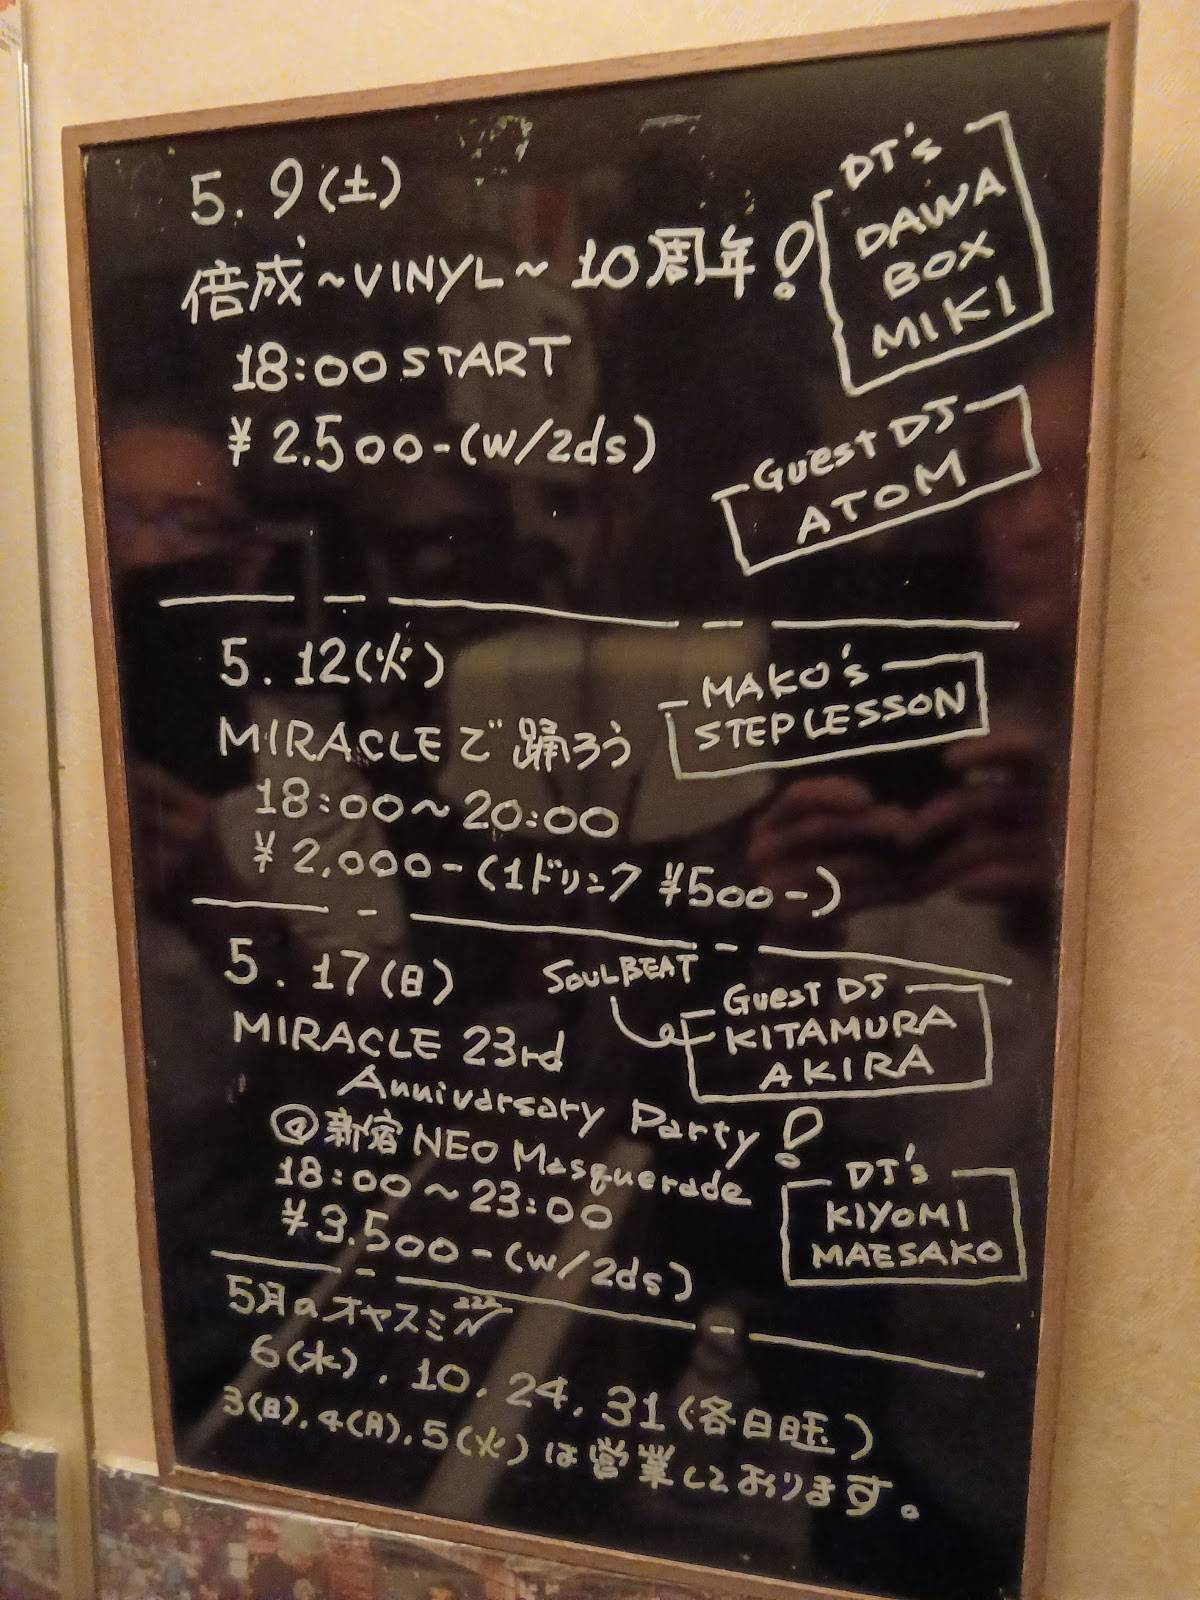 5.9(土)
倍成~VINYL~10周年!
18:00 START
¥2.500-(w/2ds)
DJ's
DAWA
BOX
MIKI
Guest DJ
ATOM
5.12(火)
MIRACLEで踊ろう
18:00~20:00
¥2,000-(1ドリンク ¥500-)
MAKO's
STEP LESSON
5.17(日)
MIRACLE 23rd
Annivarsary Party!
@新宿 NEO Masquerade
18:00~23:00
¥3.500-(w/2ds)
SOUL BEAT
Guest DJ
KITAMURA
AKIRA
DJ's
KIYOMI
MAESAKO
5月のオヤスミ
6(水).10.24.31(各日曜)
3(日).4(月).5(火)は営業しております。